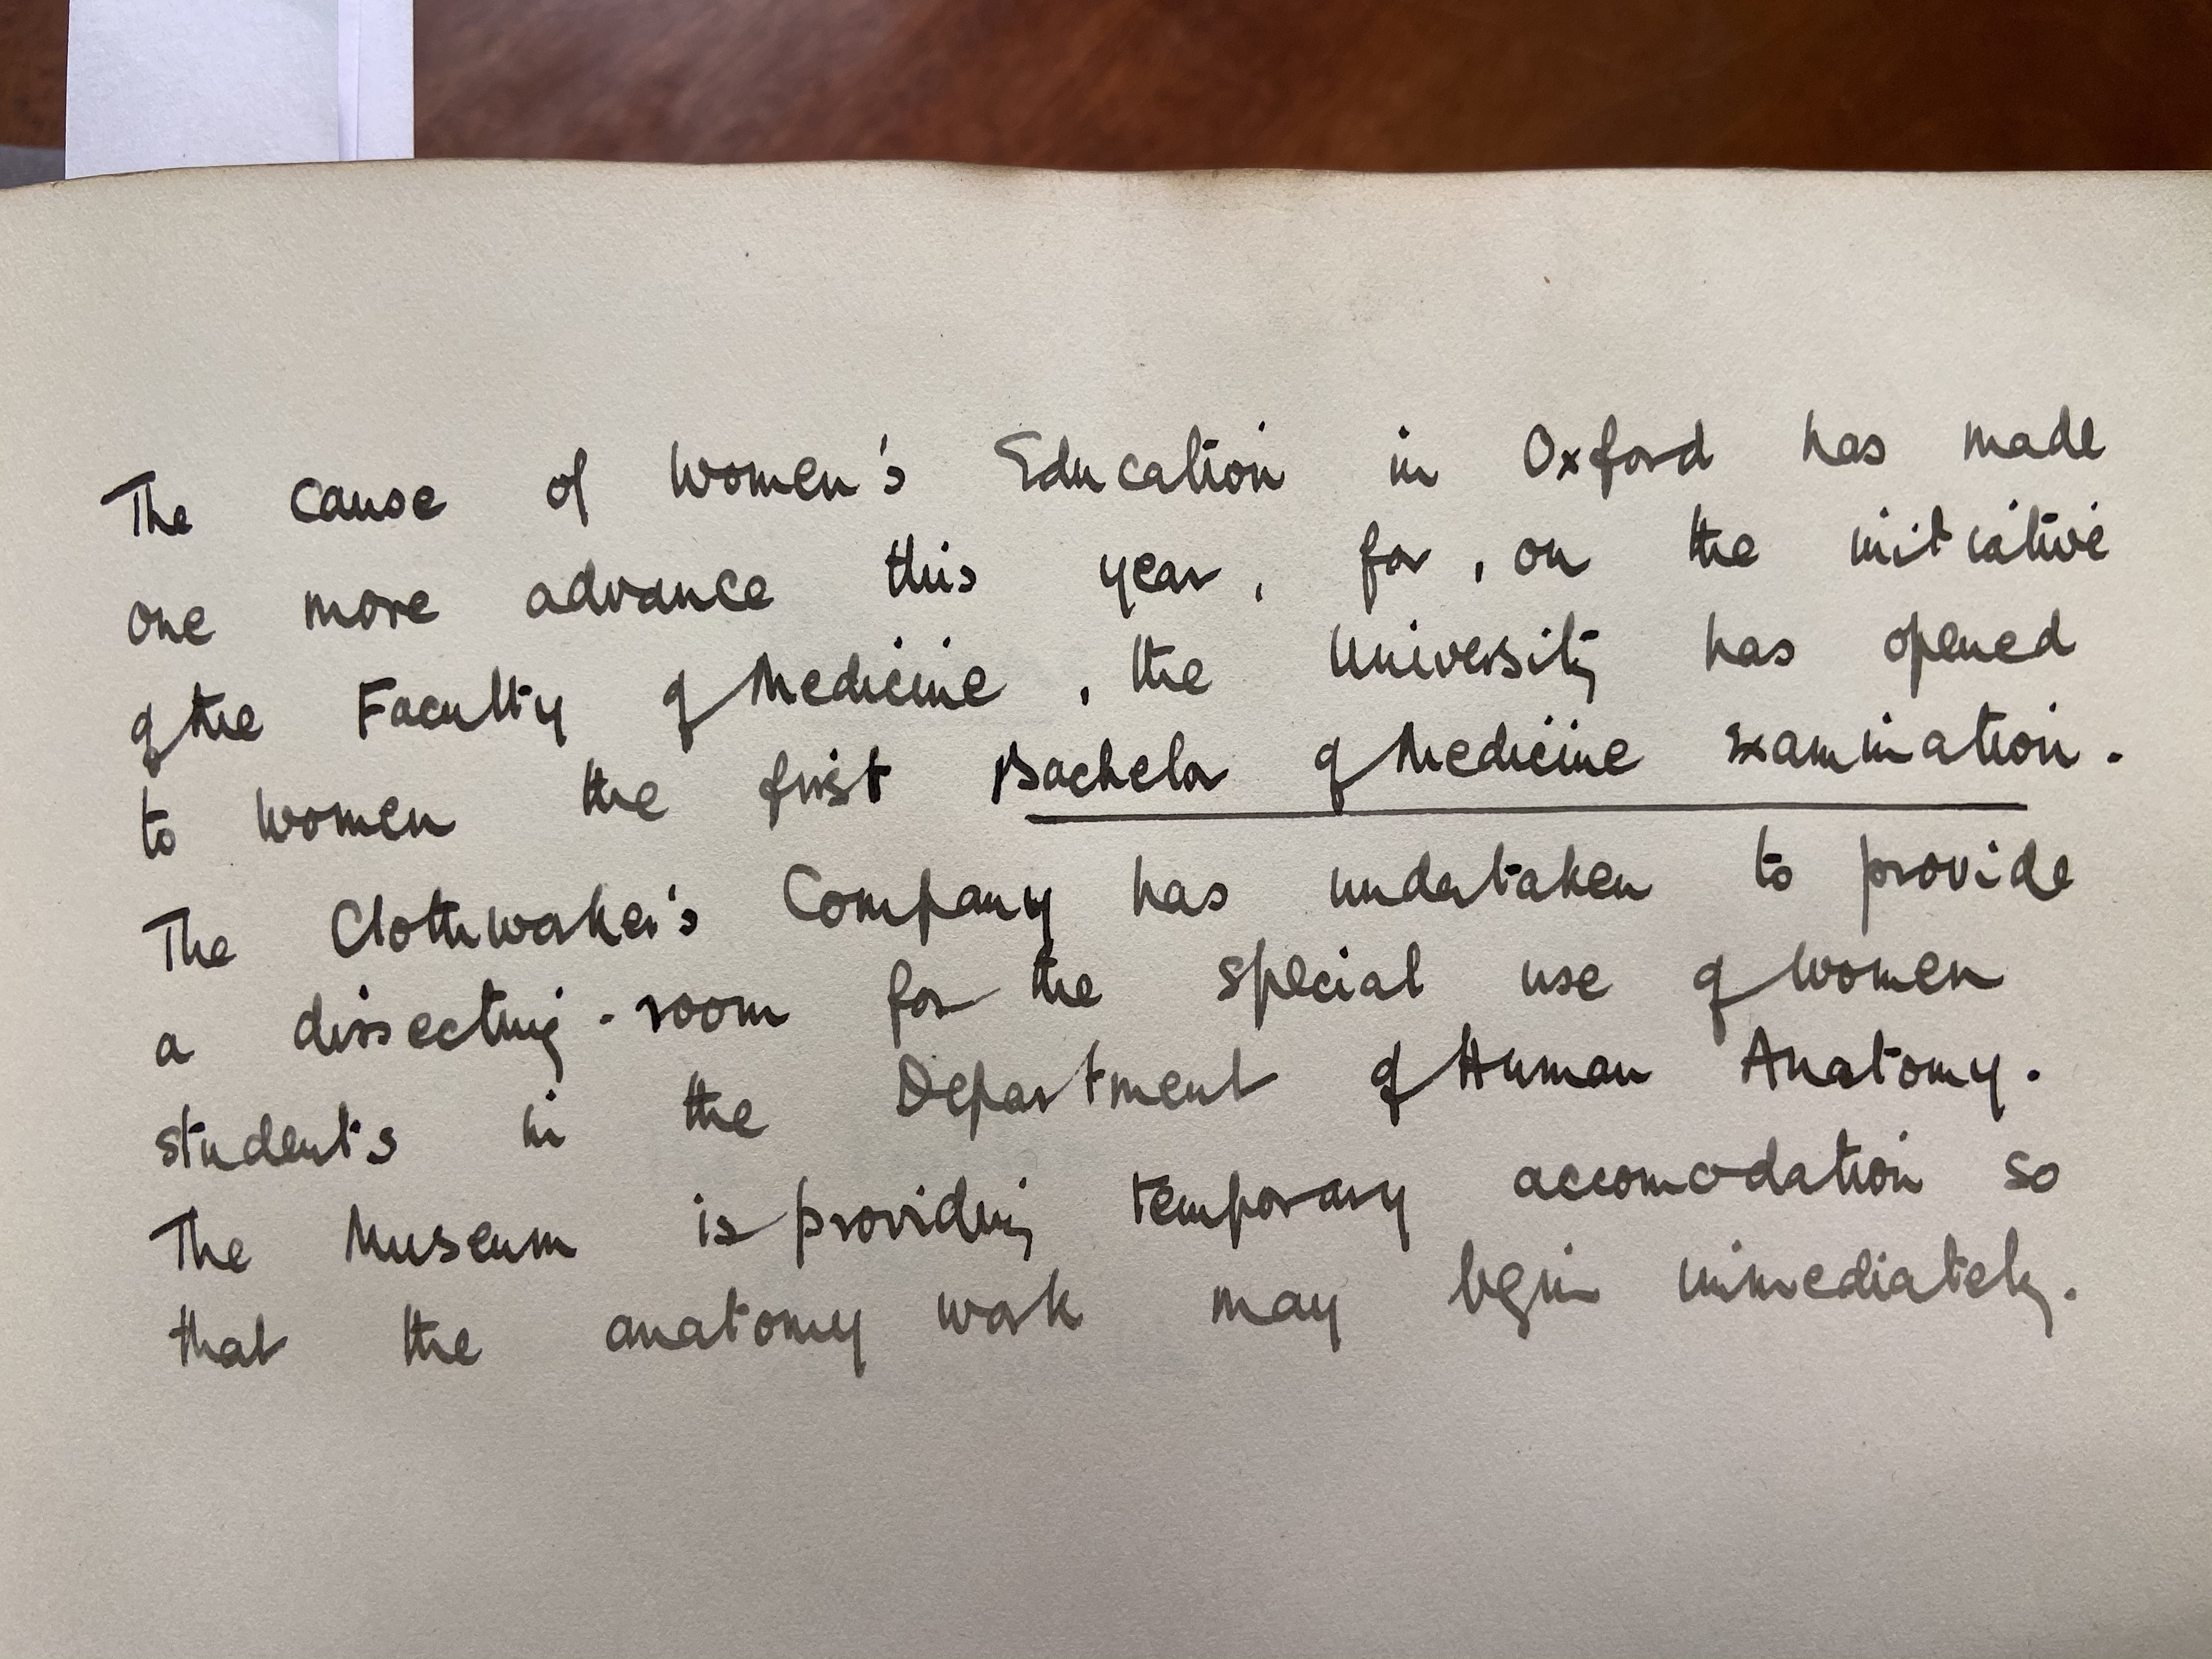 The cause of Women's Education in Oxford has made
one more advance this year, for, on the initiative
of the Faculty of Medicine, the University has opened
to women the first Bachelor of Medicine examination.
The Clothworker's Company has undertaken to provide
a dissecting-room for the special use of women
students in the Department of Human Anatomy.
The Museum is providing temporary accomodation so
that the anatomy work may begin immediately.